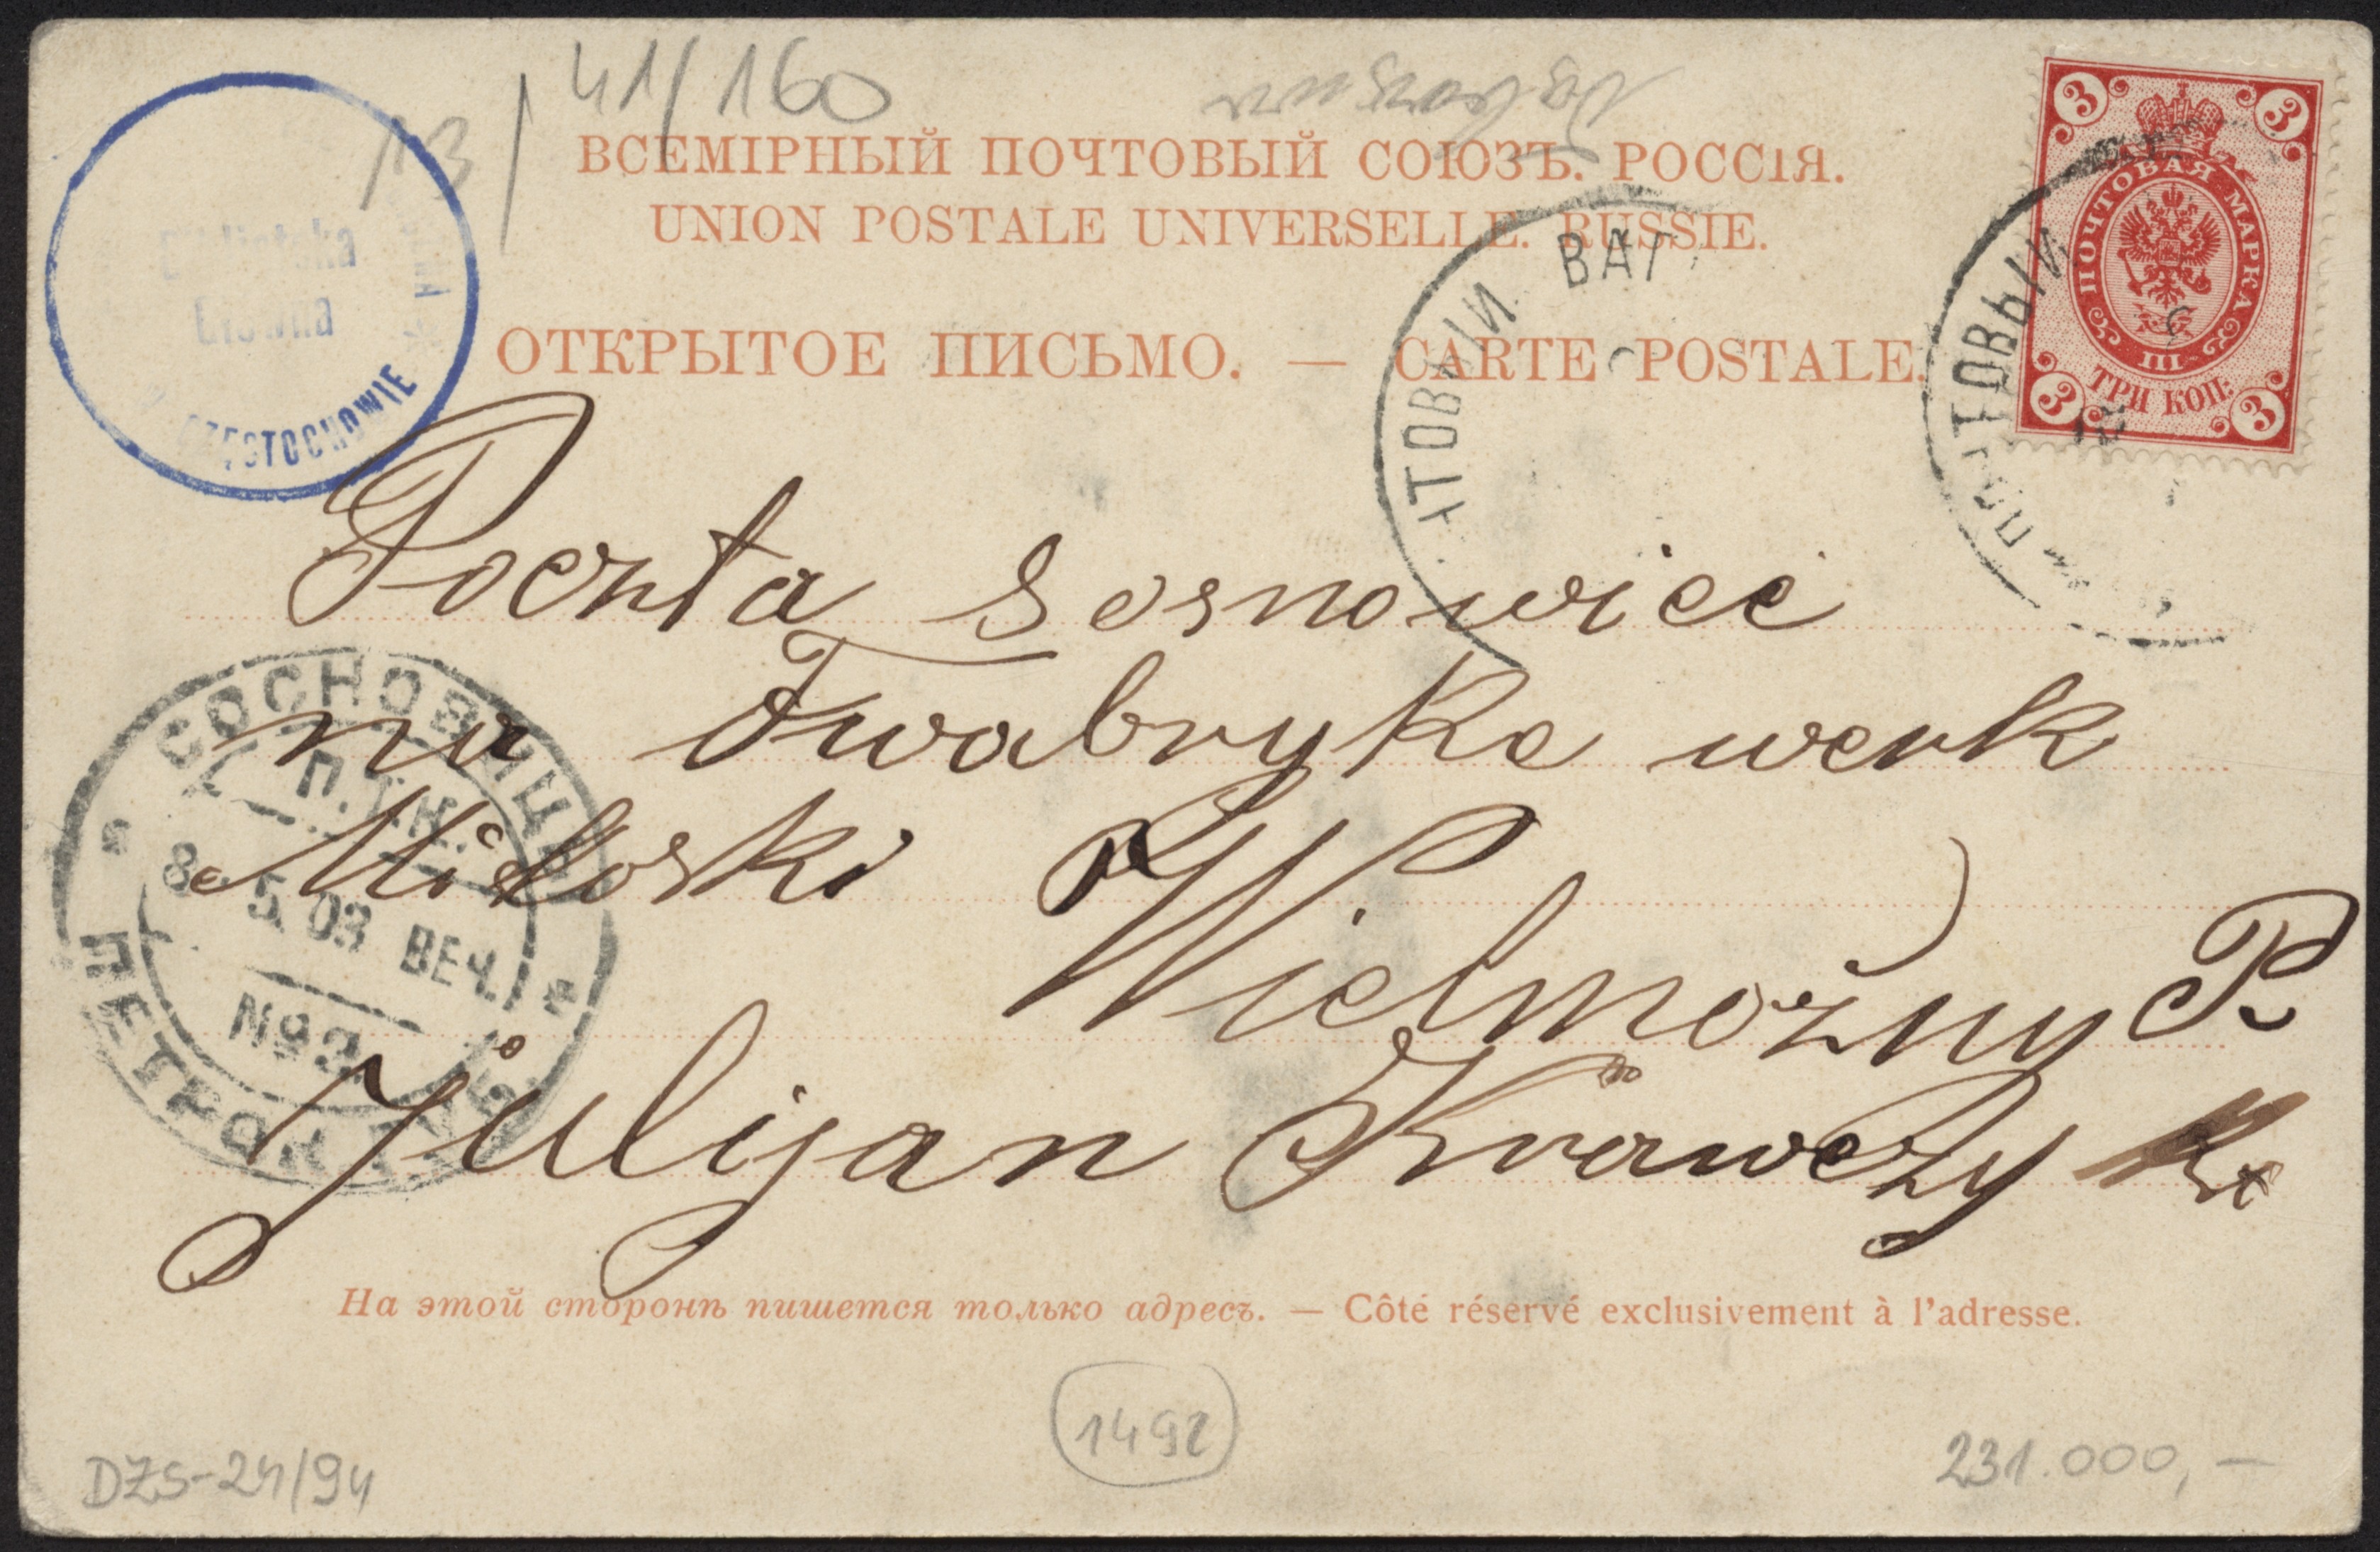 41/160
13/
ВСЕМІРНЫЙ ПОЧТОВЫЙ СОЮЗЪ. РОССІЯ.
UNION POSTALE UNIVERSELLE. RUSSIE.
ОТКРЫТОЕ ПИСЬМО. — CARTE POSTALE.
3 3
ПОЧТОВАЯ МАРКА
III
ТРИ КОП.
3 3
Biblioteka
Główna
CZĘSTOCHOWIE
ТОВЫЙ ВАГ
ПОЧТОВЫЙ
Poczta Sosnowice
na Fwabryke werk
Miloski
Wielmożny P
Julijan Krawczy
СОСНОВИЦЫ
П.Т.К.
8 5 03 ВЕЧ.
№3
ПЕТРОК. ГУБ.
На этой сторонѣ пишется только адресъ. — Côté réservé exclusivement à l'adresse.
1492
DZS-24/94
231.000,—